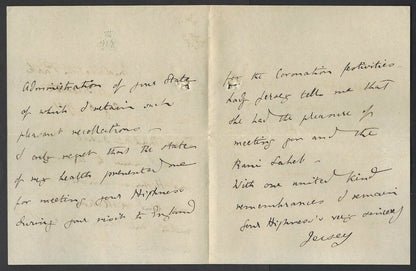 Administration of your State
of which I retain such
pleasant recollections -
I only regret that the state
of my health prevented me
for meeting your Highness
during your visit to England
for the Coronation festivities
Lady Jersey tells me that
she had the pleasure of
meeting you and the
Rani Saheb -
With our united kind
remembrances I remain
Your Highness's very sincerely
Jersey